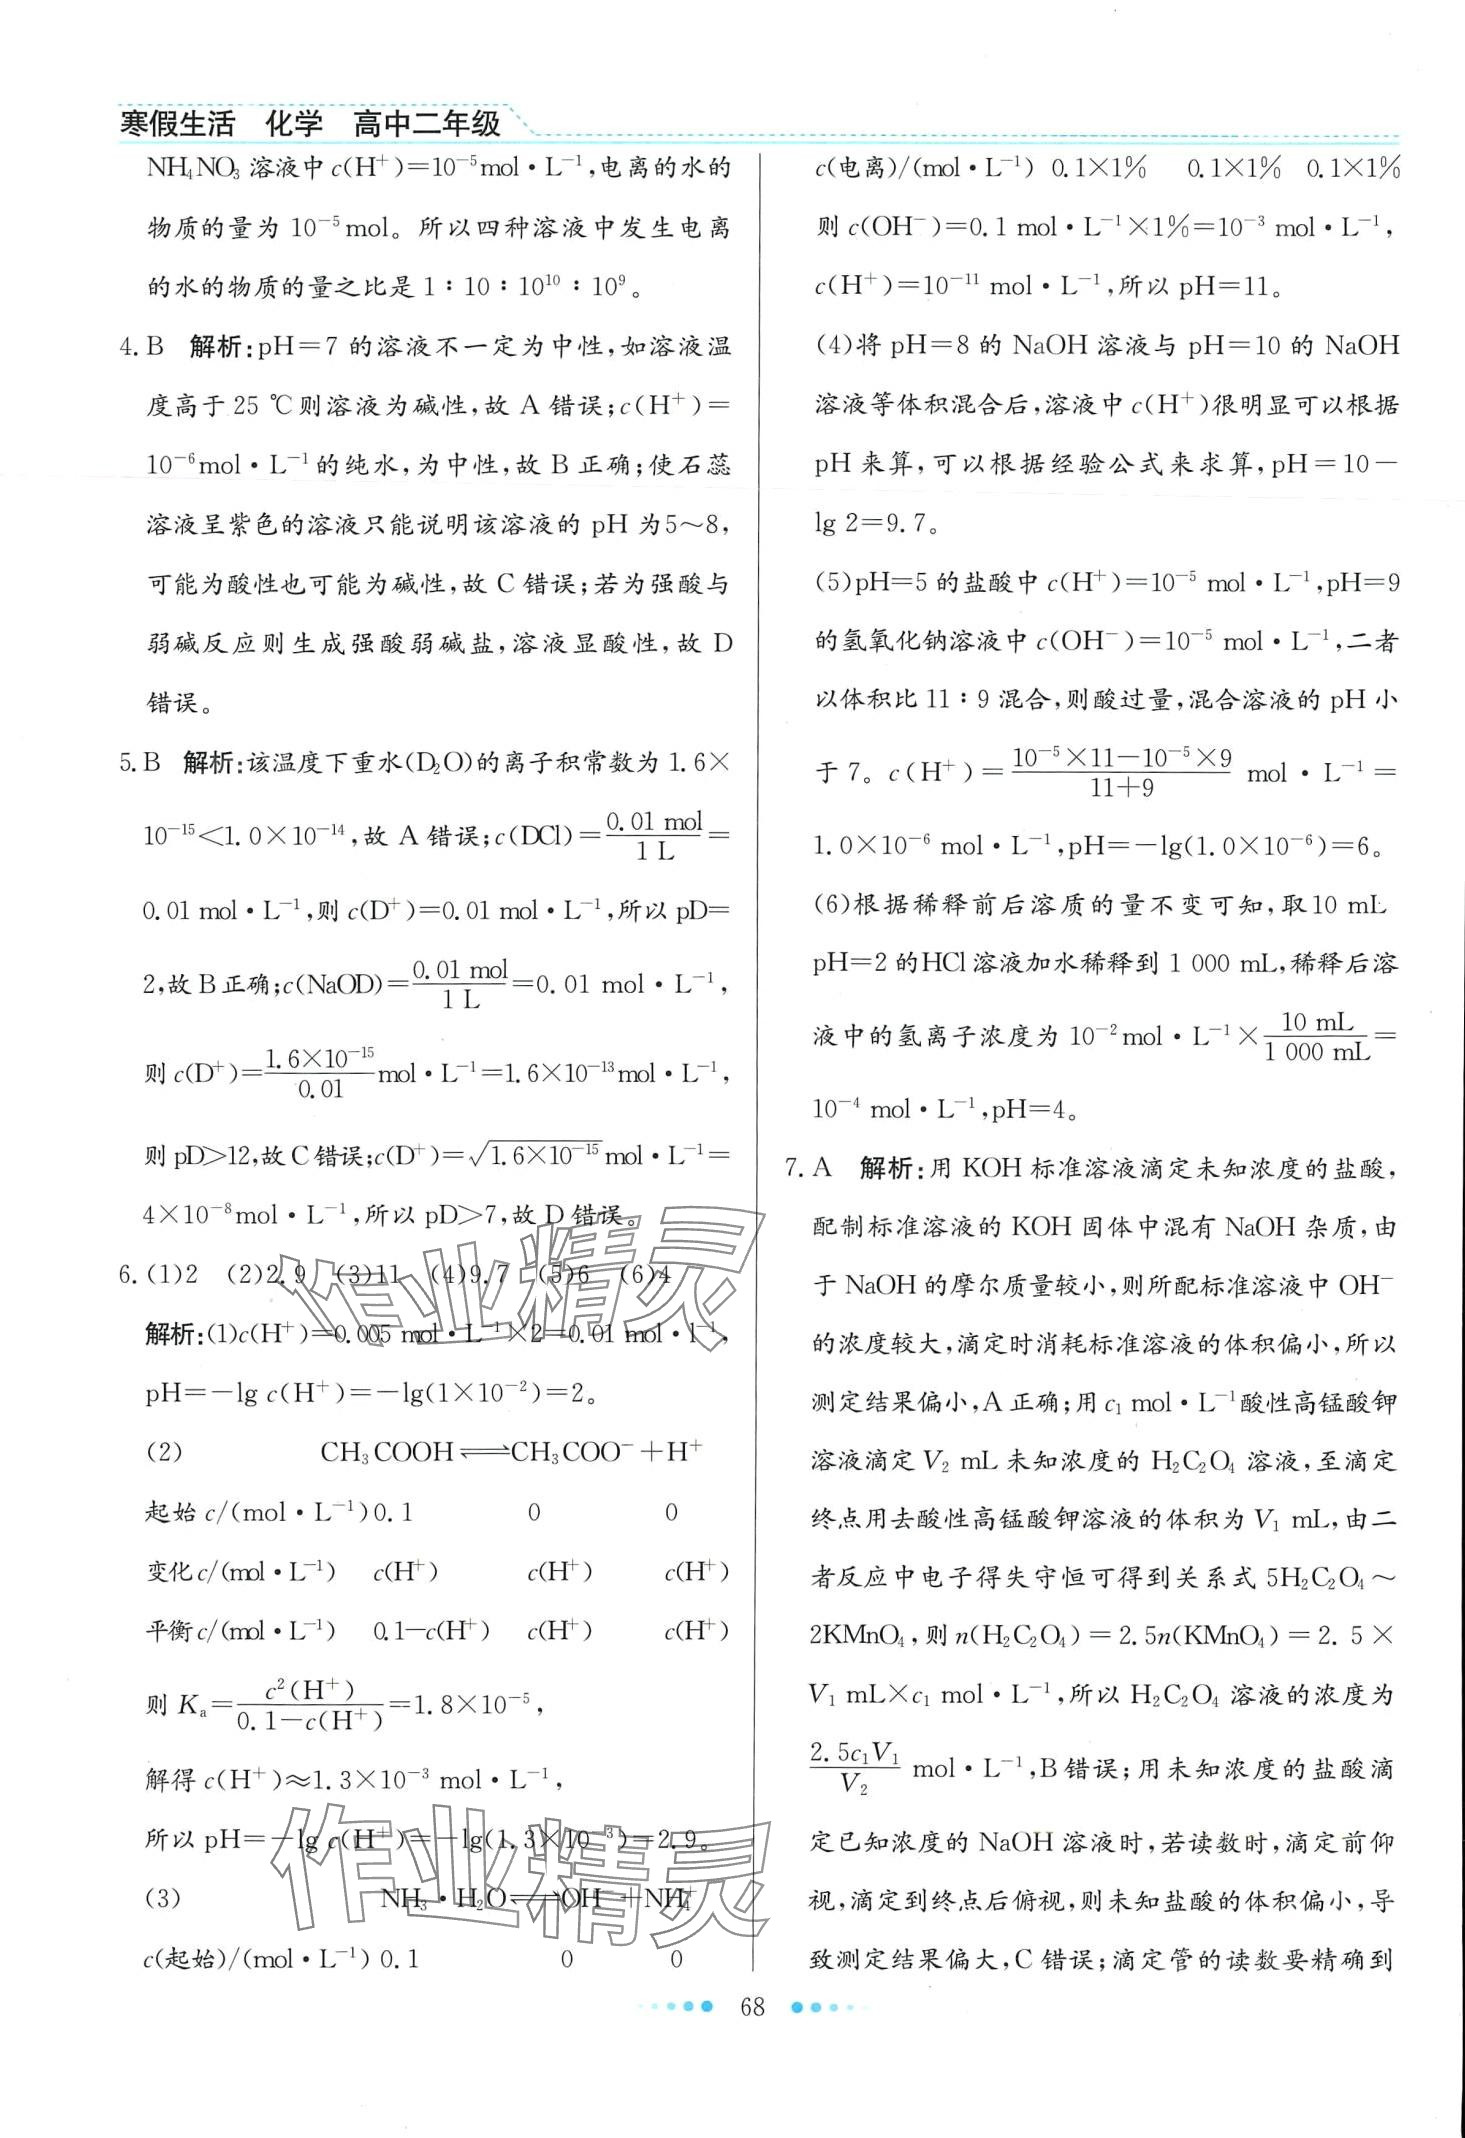 寒假生活 化学 高中二年级
NH₄NO₃ 溶液中 c(H⁺)=10⁻⁵mol·L⁻¹,电离的水的
物质的量为 10⁻⁵mol。所以四种溶液中发生电离
的水的物质的量之比是 1∶10∶10¹⁰∶10⁹。
4. B 解析:pH=7 的溶液不一定为中性,如溶液温
度高于 25 ℃则溶液为碱性,故 A 错误;c(H⁺)=
10⁻⁶mol·L⁻¹的纯水,为中性,故 B 正确;使石蕊
溶液呈紫色的溶液只能说明该溶液的 pH 为5～8,
可能为酸性也可能为碱性,故 C 错误;若为强酸与
弱碱反应则生成强酸弱碱盐,溶液显酸性,故 D
错误。
5. B 解析:该温度下重水(D₂O)的离子积常数为 1.6×
10⁻¹⁵<1.0×10⁻¹⁴,故 A 错误;c(DCl)=0.01 mol/1 L=
0.01 mol·L⁻¹,则 c(D⁺)=0.01 mol·L⁻¹,所以 pD=
2,故 B 正确;c(NaOD)=0.01 mol/1 L=0.01 mol·L⁻¹,
则 c(D⁺)=1.6×10⁻¹⁵/0.01 mol·L⁻¹=1.6×10⁻¹³mol·L⁻¹,
则 pD>12,故 C 错误;c(D⁺)=√1.6×10⁻¹⁵mol·L⁻¹=
4×10⁻⁸mol·L⁻¹,所以 pD>7,故 D 错误。
6. (1)2 (2)2.9 (3)11 (4)9.7 (5)6 (6)4
解析:(1)c(H⁺)=0.005 mol·L⁻¹×2=0.01 mol·l⁻¹,
pH=−lg c(H⁺)=−lg(1×10⁻²)=2。
(2) CH₃COOH⇌CH₃COO⁻+H⁺
起始 c/(mol·L⁻¹)0.1 0 0
变化 c/(mol·L⁻¹) c(H⁺) c(H⁺) c(H⁺)
平衡 c/(mol·L⁻¹) 0.1−c(H⁺) c(H⁺) c(H⁺)
则 Kₐ=c²(H⁺)/0.1−c(H⁺)=1.8×10⁻⁵,
解得 c(H⁺)≈1.3×10⁻³ mol·L⁻¹,
所以 pH=−lg c(H⁺)=−lg(1.3×10⁻³)=2.9。
(3) NH₃·H₂O⇌OH⁻+NH₄⁺
c(起始)/(mol·L⁻¹) 0.1 0 0
c(电离)/(mol·L⁻¹) 0.1×1% 0.1×1% 0.1×1%
则 c(OH⁻)=0.1 mol·L⁻¹×1%=10⁻³ mol·L⁻¹,
c(H⁺)=10⁻¹¹ mol·L⁻¹,所以 pH=11。
(4)将 pH=8 的 NaOH 溶液与 pH=10 的 NaOH
溶液等体积混合后,溶液中 c(H⁺)很明显可以根据
pH 来算,可以根据经验公式来求算,pH=10−
lg 2=9.7。
(5)pH=5 的盐酸中 c(H⁺)=10⁻⁵ mol·L⁻¹,pH=9
的氢氧化钠溶液中 c(OH⁻)=10⁻⁵ mol·L⁻¹,二者
以体积比 11∶9 混合,则酸过量,混合溶液的 pH 小
于 7。c(H⁺)=10⁻⁵×11−10⁻⁵×9/11+9 mol·L⁻¹=
1.0×10⁻⁶ mol·L⁻¹,pH=−lg(1.0×10⁻⁶)=6。
(6)根据稀释前后溶质的量不变可知,取10 mL
pH=2 的HCl溶液加水稀释到 1 000 mL,稀释后溶
液中的氢离子浓度为 10⁻²mol·L⁻¹×10 mL/1 000 mL=
10⁻⁴ mol·L⁻¹,pH=4。
7. A 解析:用 KOH 标准溶液滴定未知浓度的盐酸,
配制标准溶液的 KOH 固体中混有 NaOH 杂质,由
于 NaOH 的摩尔质量较小,则所配标准溶液中 OH⁻
的浓度较大,滴定时消耗标准溶液的体积偏小,所以
测定结果偏小,A 正确;用 c₁ mol·L⁻¹酸性高锰酸钾
溶液滴定 V₂ mL 未知浓度的 H₂C₂O₄ 溶液,至滴定
终点用去酸性高锰酸钾溶液的体积为 V₁ mL,由二
者反应中电子得失守恒可得到关系式 5H₂C₂O₄～
2KMnO₄,则 n(H₂C₂O₄)=2.5n(KMnO₄)=2.5×
V₁ mL×c₁ mol·L⁻¹,所以 H₂C₂O₄ 溶液的浓度为
2.5c₁V₁/V₂ mol·L⁻¹,B 错误;用未知浓度的盐酸滴
定已知浓度的 NaOH 溶液时,若读数时,滴定前仰
视,滴定到终点后俯视,则未知盐酸的体积偏小,导
致测定结果偏大,C 错误;滴定管的读数要精确到
68
作业精灵
作业精灵